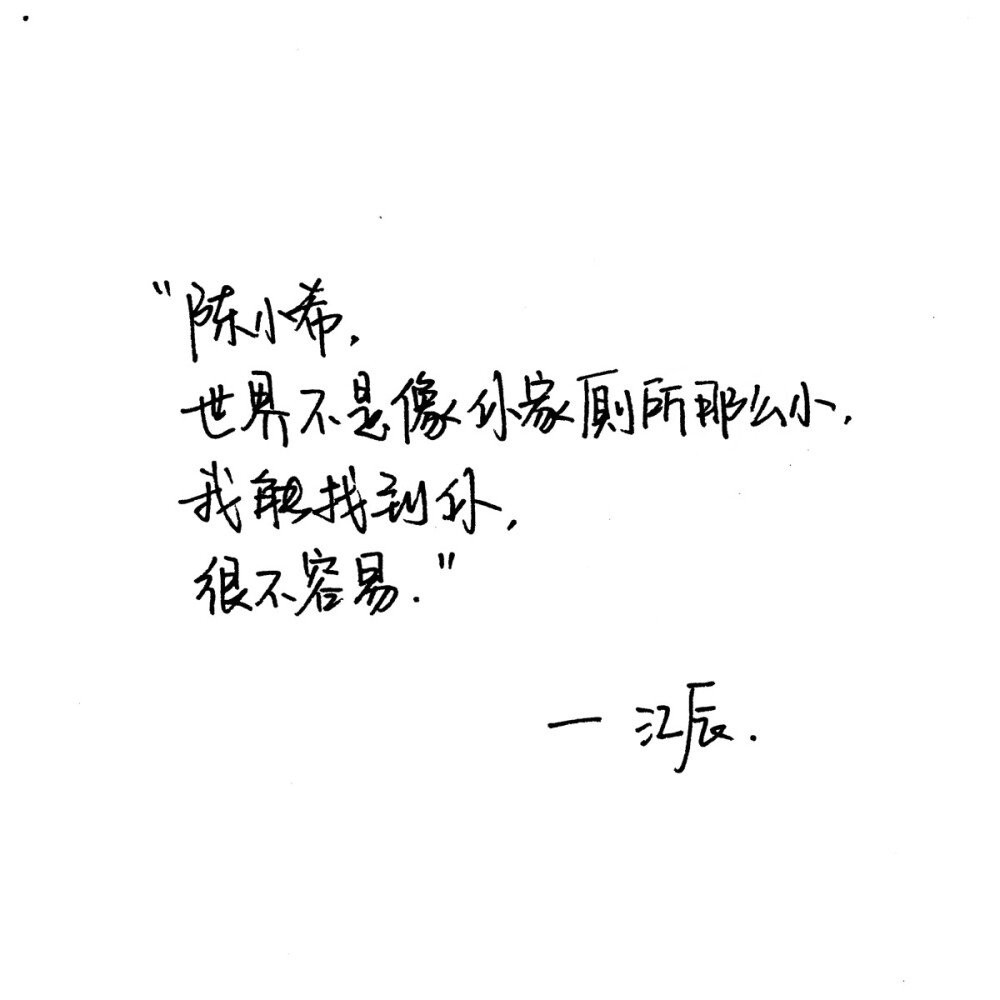 "陈小希,
世界不是像你家厕所那么小,
我能找到你,
很不容易."
— 江辰.